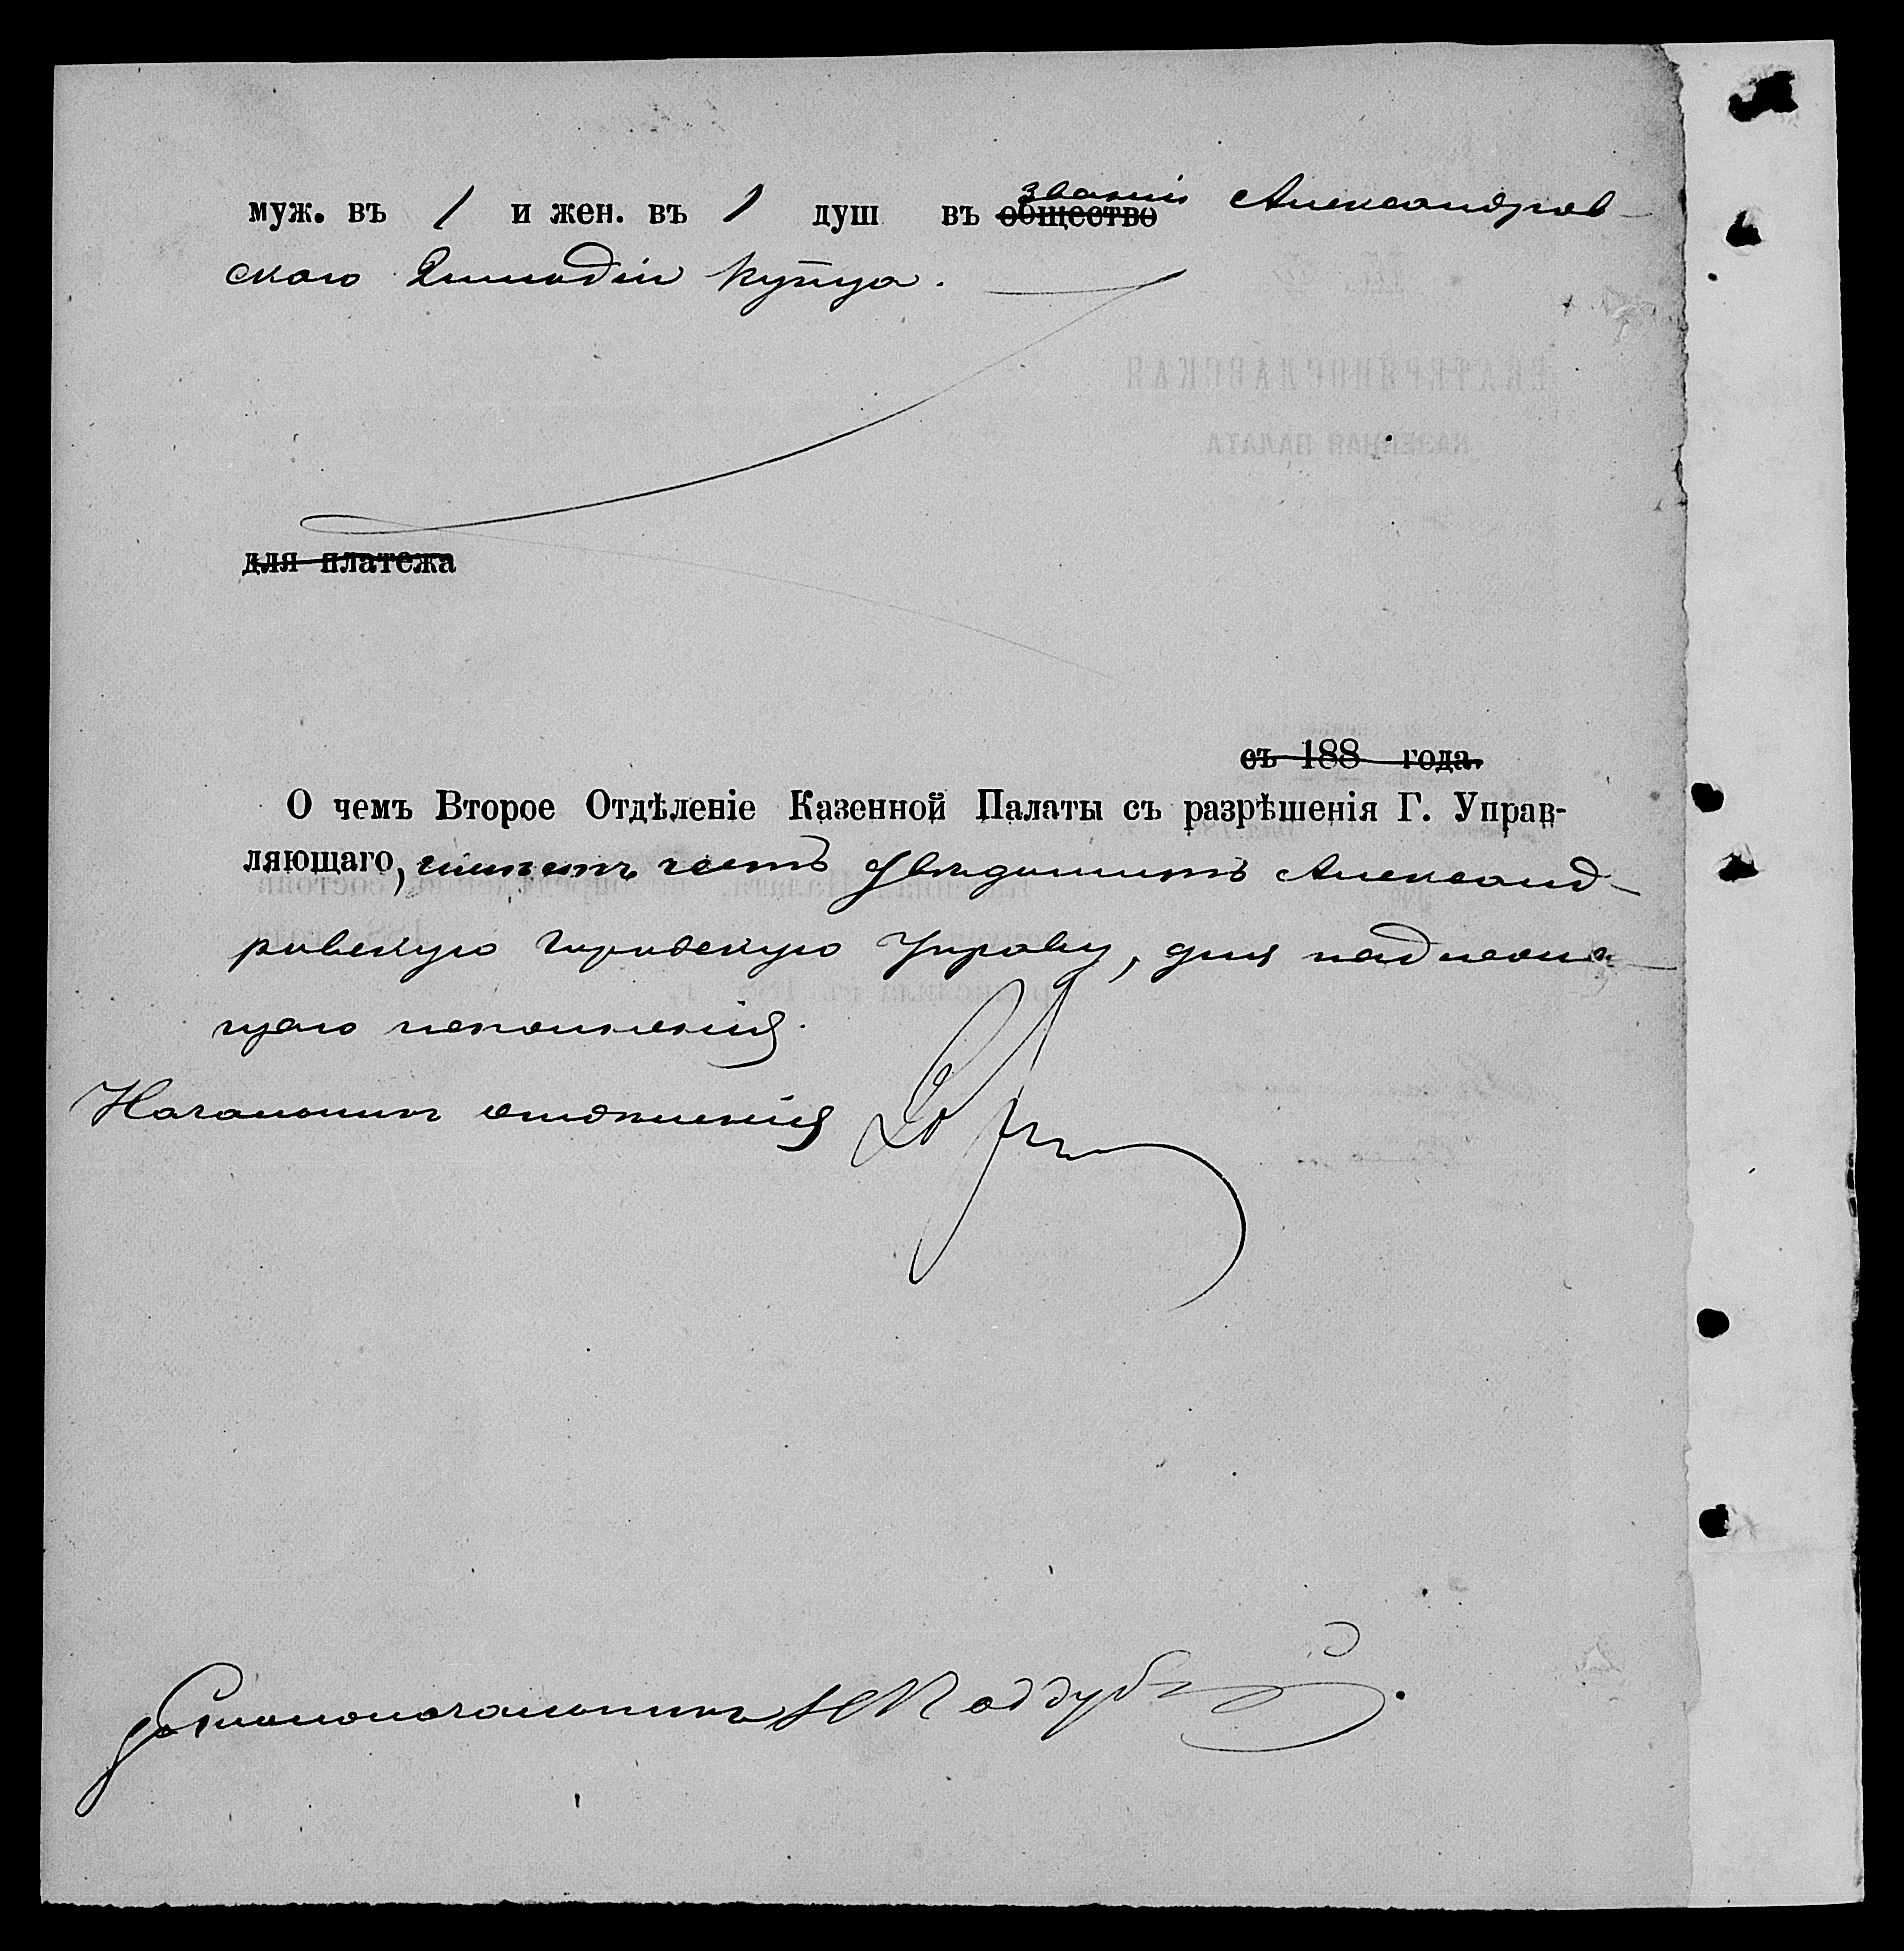 муж. въ 1 и жен. въ 1 душ въ общество званіи Александров-
скаго 2 гильдіи купца.
для платежа
съ 188 года.
О чемъ Второе Отдѣленіе Казенной Палаты съ разрѣшенія Г. Управ-
ляющаго, имѣетъ честь увѣдомить Александ-
ровскую городскую Управу, для надлежа-
щаго исполненія.
Начальникъ отдѣленія
Столоначальникъ Поддуб